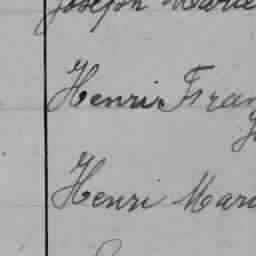 Joseph Marie
Henri Fran
Henri Mari